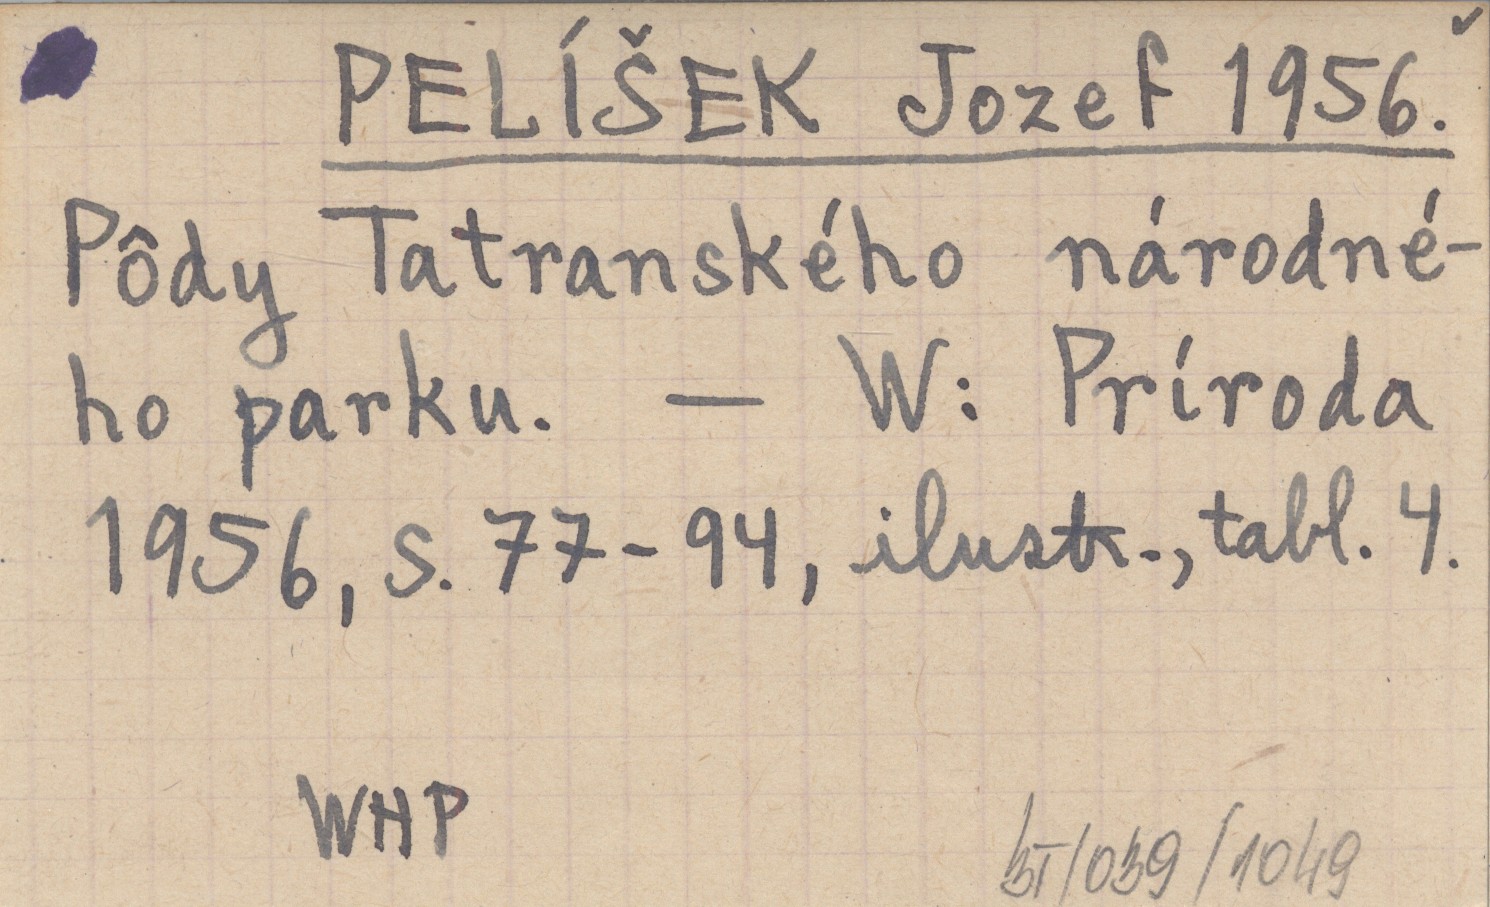 PELÍŠEK Jozef 1956.
Pôdy Tatranského národné-
ho parku. — W: Príroda
1956, s. 77-94, ilustr., tabl. 4.
WHP
BT/039/1049